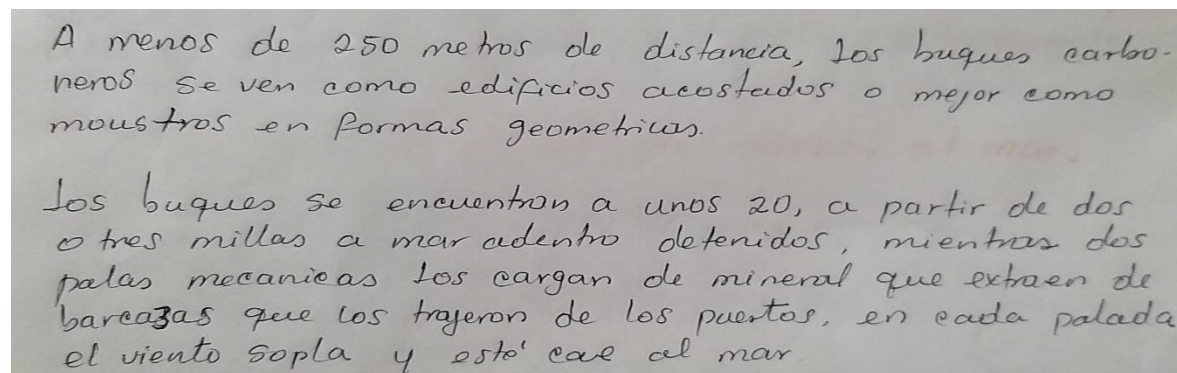 A menos de 250 metros de distancia, los buques carbo-
neros se ven como edificios acostados o mejor como
moustros en formas geometricas.
los buques se encuentran a unos 20, a partir de dos
o tres millas a mar adentro detenidos, mientras dos
palas mecanicas los cargan de mineral que extraen de
barcazas que los trajeron de los puertos, en cada palada
el viento sopla y esté cae al mar